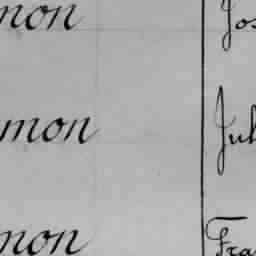 mon Jos
mon Jul
mon Fra